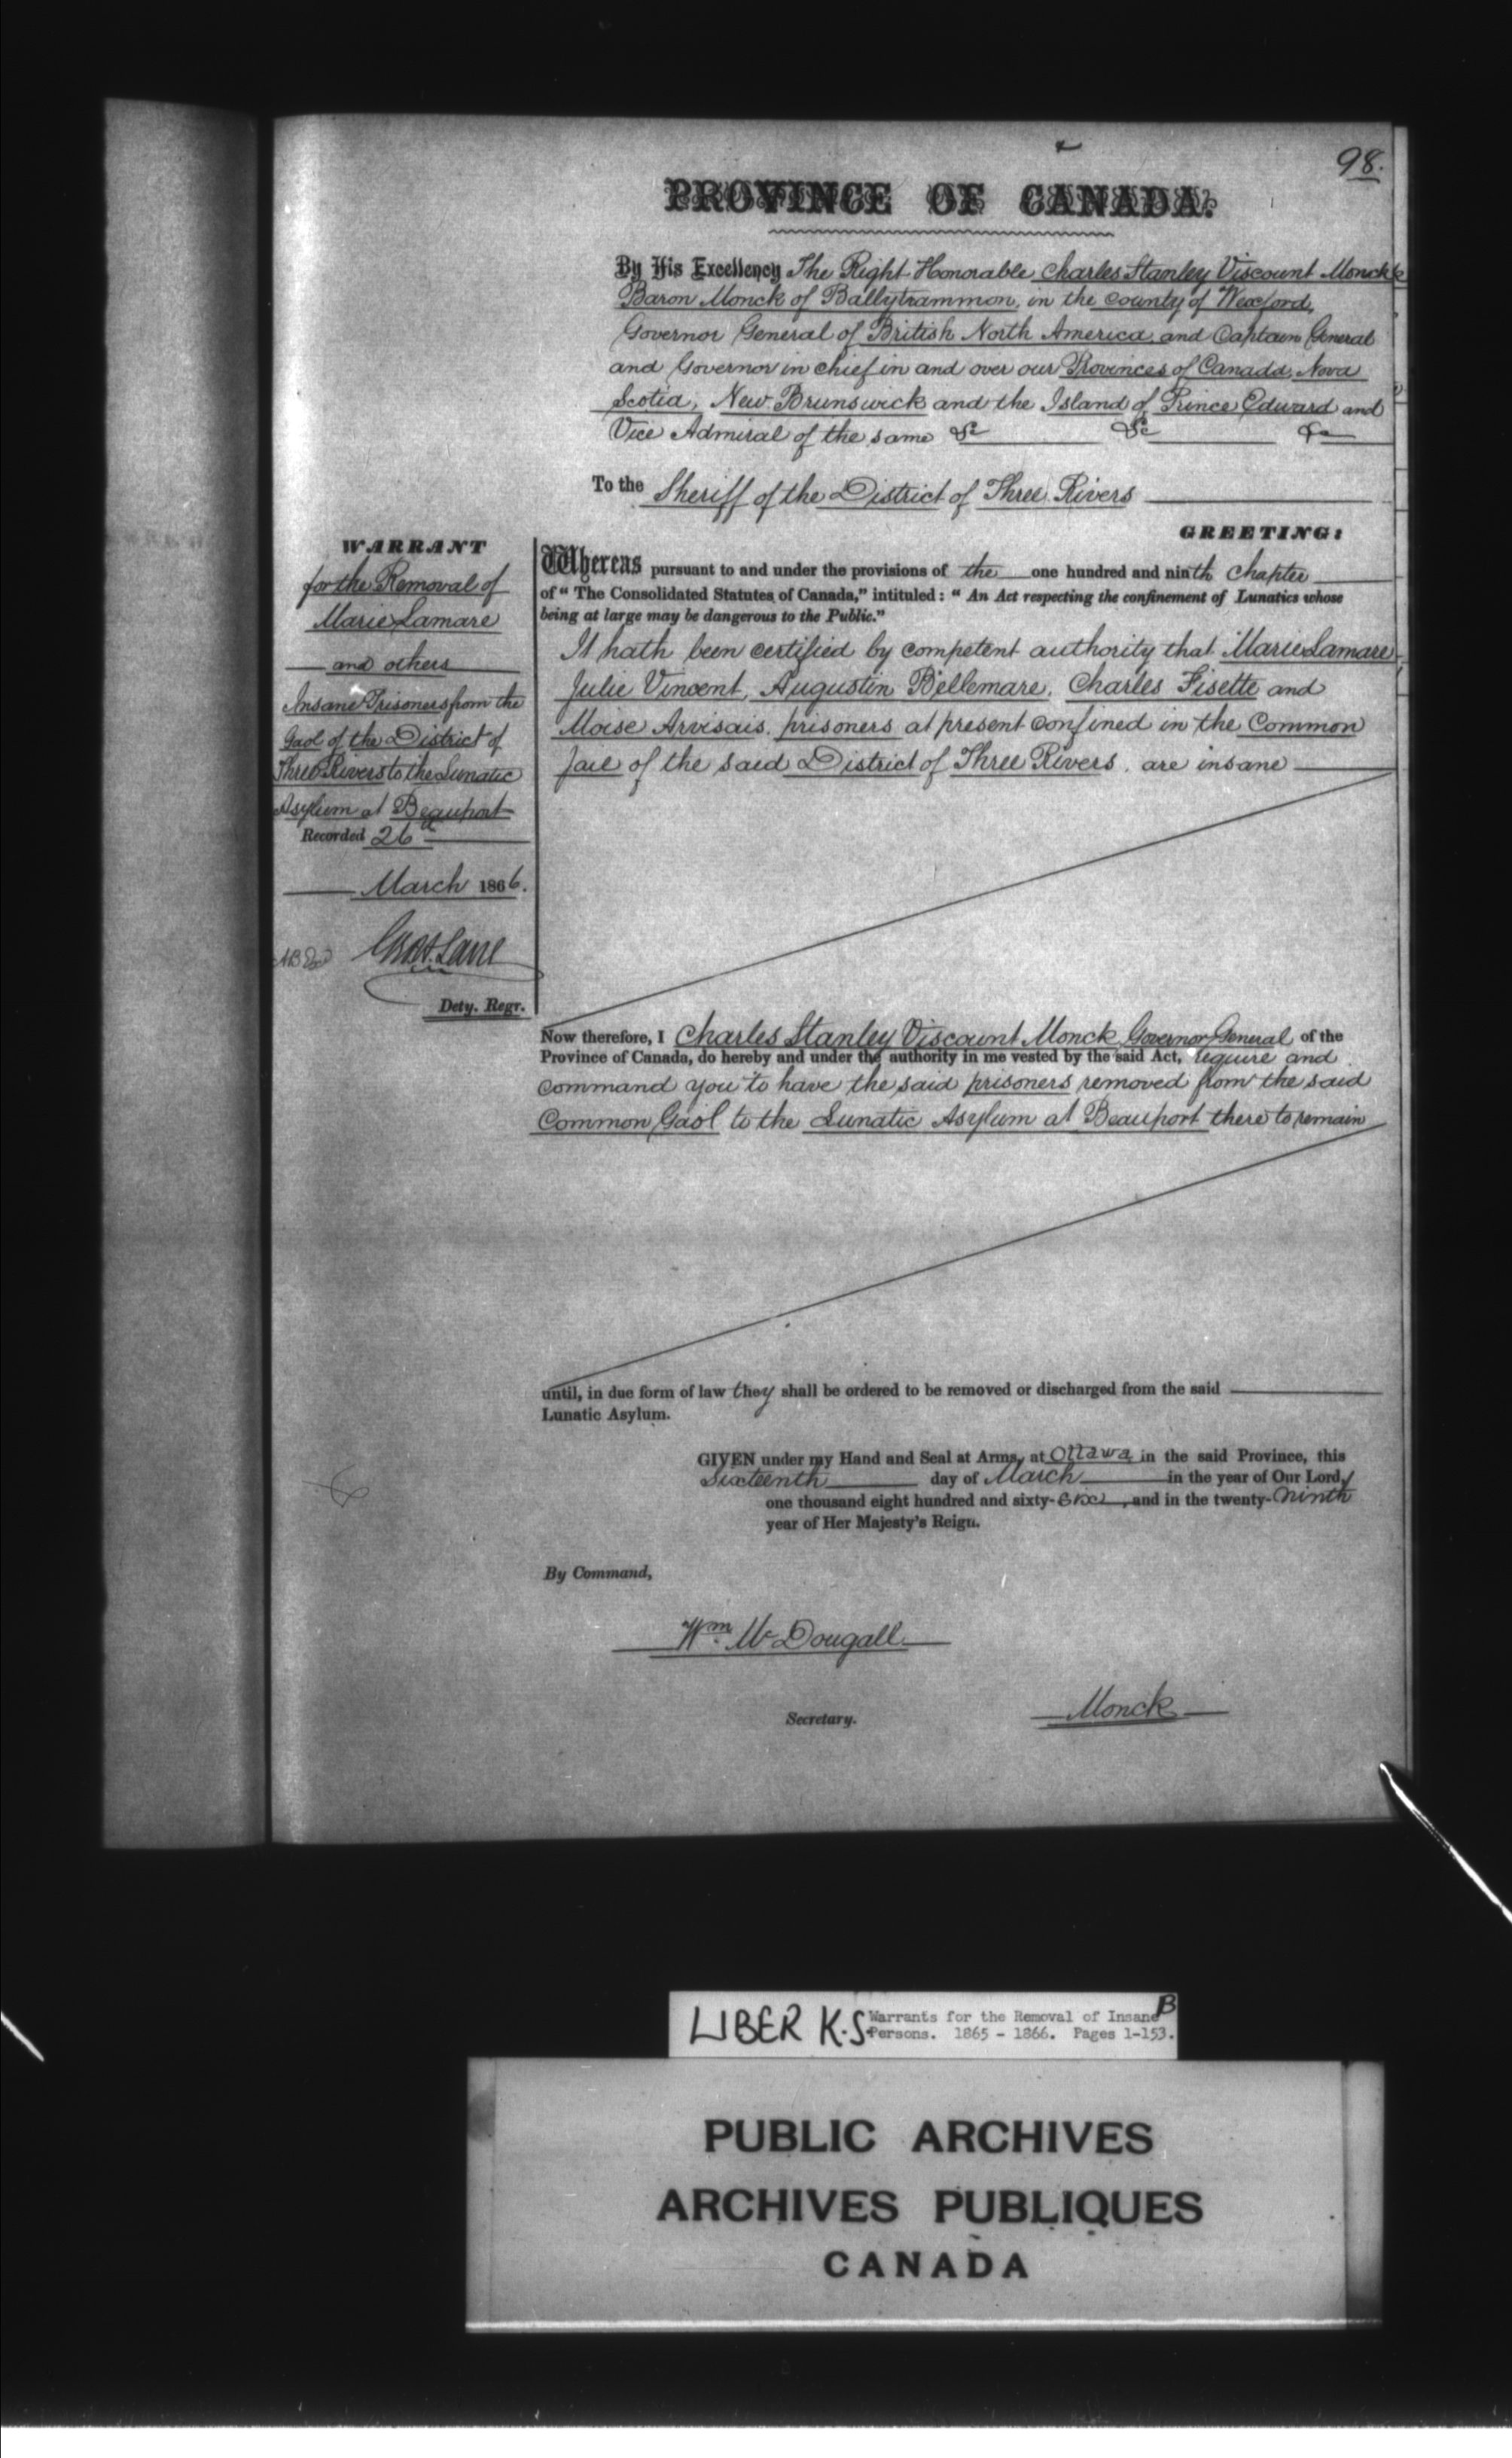 98.
PROVINCE OF CANADA.
By His Excellency The Right Honorable Charles Stanley Viscount Monck
Baron Monck of Ballytrammon, in the county of Wexford,
Governor General of British North America, and Captain General
and Governor in chief in and over our Provinces of Canada, Nova
Scotia, New Brunswick and the Island of Prince Edward and
Vice Admiral of the same &c &c &c
To the Sheriff of the District of Three Rivers
GREETING:
WARRANT
for the Removal of
Marie Lamare
and others
Insane Prisoners from the
Gaol of the District of
Three Rivers to the Lunatic
Asylum at Beauport
Recorded 26th
March 1866.
Dety. Regr.
Whereas pursuant to and under the provisions of the one hundred and ninth Chapter
of "The Consolidated Statutes of Canada," intituled: "An Act respecting the confinement of Lunatics whose
being at large may be dangerous to the Public."
It hath been certified by competent authority that Marie Lamare,
Julie Vincent, Augustin Bellemare, Charles Fisette and
Moise Arvisais, prisoners at present confined in the Common
Jail of the said District of Three Rivers, are insane
Now therefore, I Charles Stanley Viscount Monck Governor General of the
Province of Canada, do hereby and under the authority in me vested by the said Act, require and
command you to have the said prisoners removed from the said
Common Gaol to the Lunatic Asylum at Beauport there to remain
until, in due form of law they shall be ordered to be removed or discharged from the said
Lunatic Asylum.
GIVEN under my Hand and Seal at Arms, at Ottawa in the said Province, this
Sixteenth day of March in the year of Our Lord,
one thousand eight hundred and sixty-six, and in the twenty-ninth
year of Her Majesty's Reign.
By Command,
Wm. McDougall
Secretary.
Monck
LIBER K.S. Warrants for the Removal of Insane B
Persons. 1865 - 1866. Pages 1-153.
PUBLIC ARCHIVES
ARCHIVES PUBLIQUES
CANADA